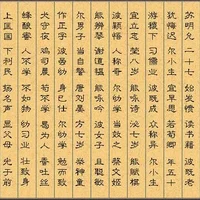 苏明允二十七始发愤读书籍彼既老
犹悔迟尔小生宜早思若荀卿年五十
游稷下习儒业彼既成众称异尔小生
宜立志莹八岁能咏诗泌七岁能赋棋
彼颖悟人称奇尔幼学当效之蔡文姬
能辨琴谢道韫能咏吟彼女子且聪敏
尔男子当自警唐刘晏方七岁举神童
作正字彼虽幼身已仕尔幼学勉而致
犬守夜鸡司晨苟不学曷为人蚕吐丝
蜂酿蜜人不学不如物幼习业壮致身
上匡国下利民扬名声显父母光于前